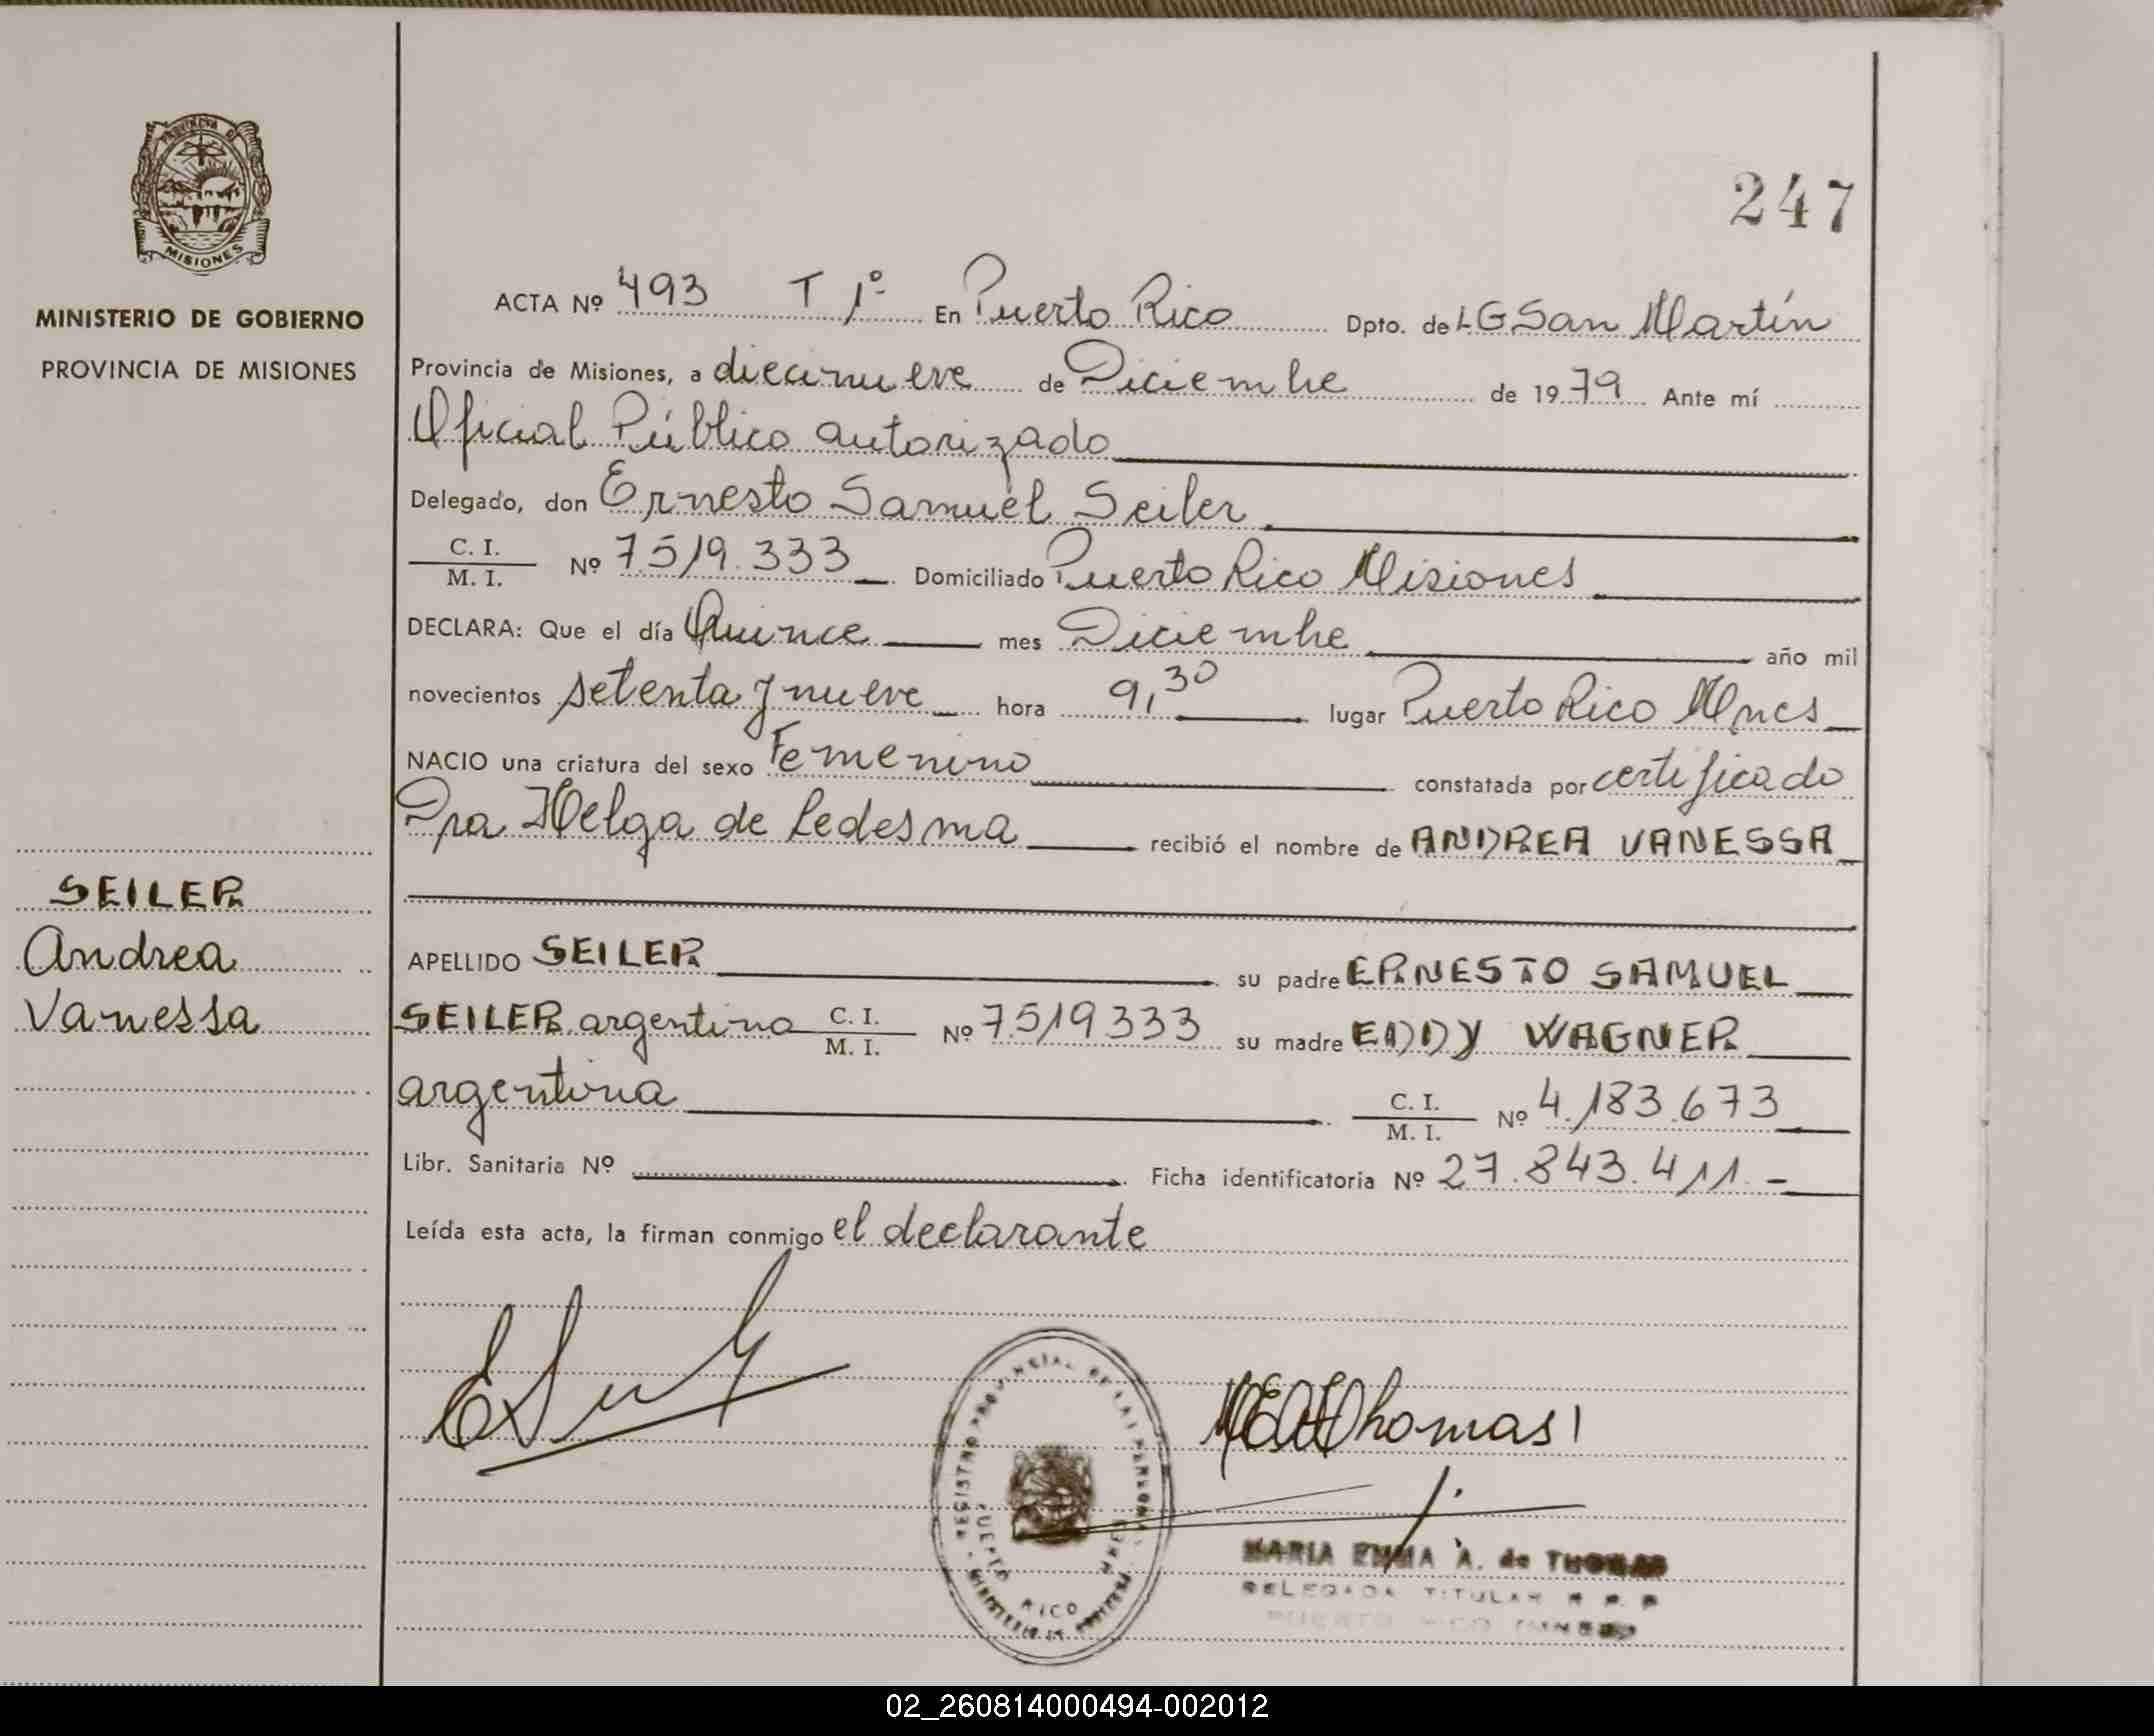 PROVINCIA DE
MISIONES
MINISTERIO DE GOBIERNO
PROVINCIA DE MISIONES
SEILER
Andrea
Vanessa
247
ACTA Nº 493 T 1º En Puerto Rico Dpto. de L G San Martín
Provincia de Misiones, a diecinueve de Diciembre de 1979 Ante mí
Oficial Público autorizado
Delegado, don Ernesto Samuel Seiler
C. I. / M. I. Nº 7.519.333 Domiciliado Puerto Rico Misiones
DECLARA: Que el día Quince mes Diciembre año mil
novecientos setenta y nueve hora 9,30 lugar Puerto Rico Mnes
NACIO una criatura del sexo Femenino constatada por certificado
Dra Helga de Ledesma recibió el nombre de ANDREA VANESSA
APELLIDO SEILER su padre ERNESTO SAMUEL
SEILER argentino C. I. / M. I. Nº 7.519333 su madre EDDY WAGNER
argentina C. I. / M. I. Nº 4.183.673
Libr. Sanitaria Nº Ficha identificatoria Nº 27.843.411.-
Leída esta acta, la firman conmigo el declarante
REGISTRO PROVINCIAL DE LAS PERSONAS
PUERTO RICO
MINISTERIO DE GOBIERNO
Thomas
MARIA EMMA A. de THOMAS
DELEGADA TITULAR R. P. P.
PUERTO RICO
02_260814000494-002012